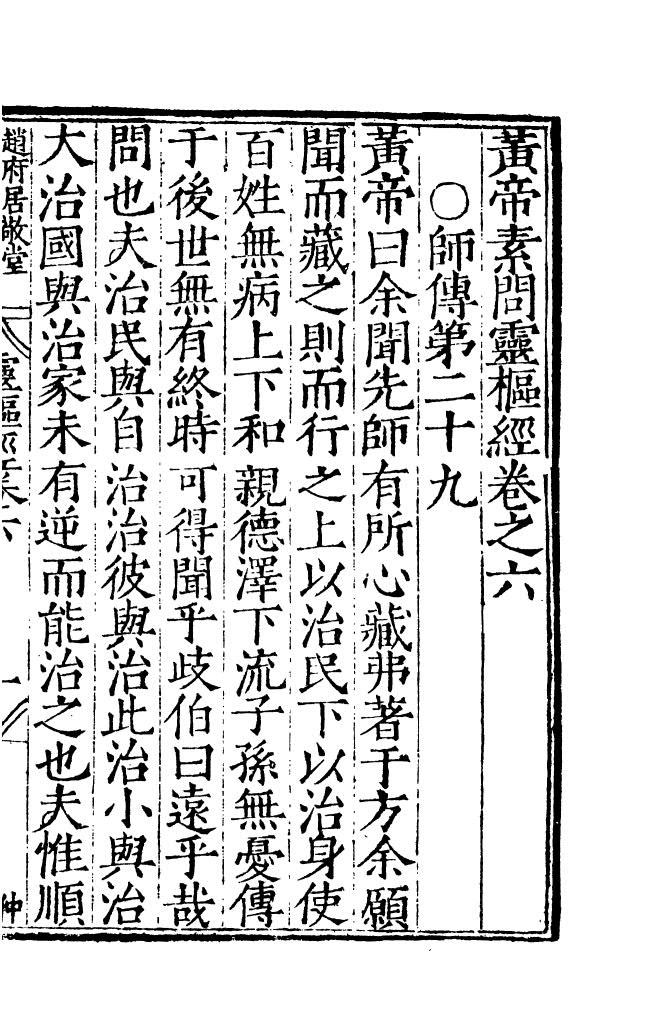 黃帝素問靈樞經卷之六
○師傳第二十九
黃帝曰余聞先師有所心藏弗著于方余願
聞而藏之則而行之上以治民下以治身使
百姓無病上下和親德澤下流子孫無憂傳
于後世無有終時可得聞乎歧伯曰遠乎哉
問也夫治民與自治治彼與治此治小與治
大治國與治家未有逆而能治之也夫惟順
趙府居敬堂 靈樞經卷六 一